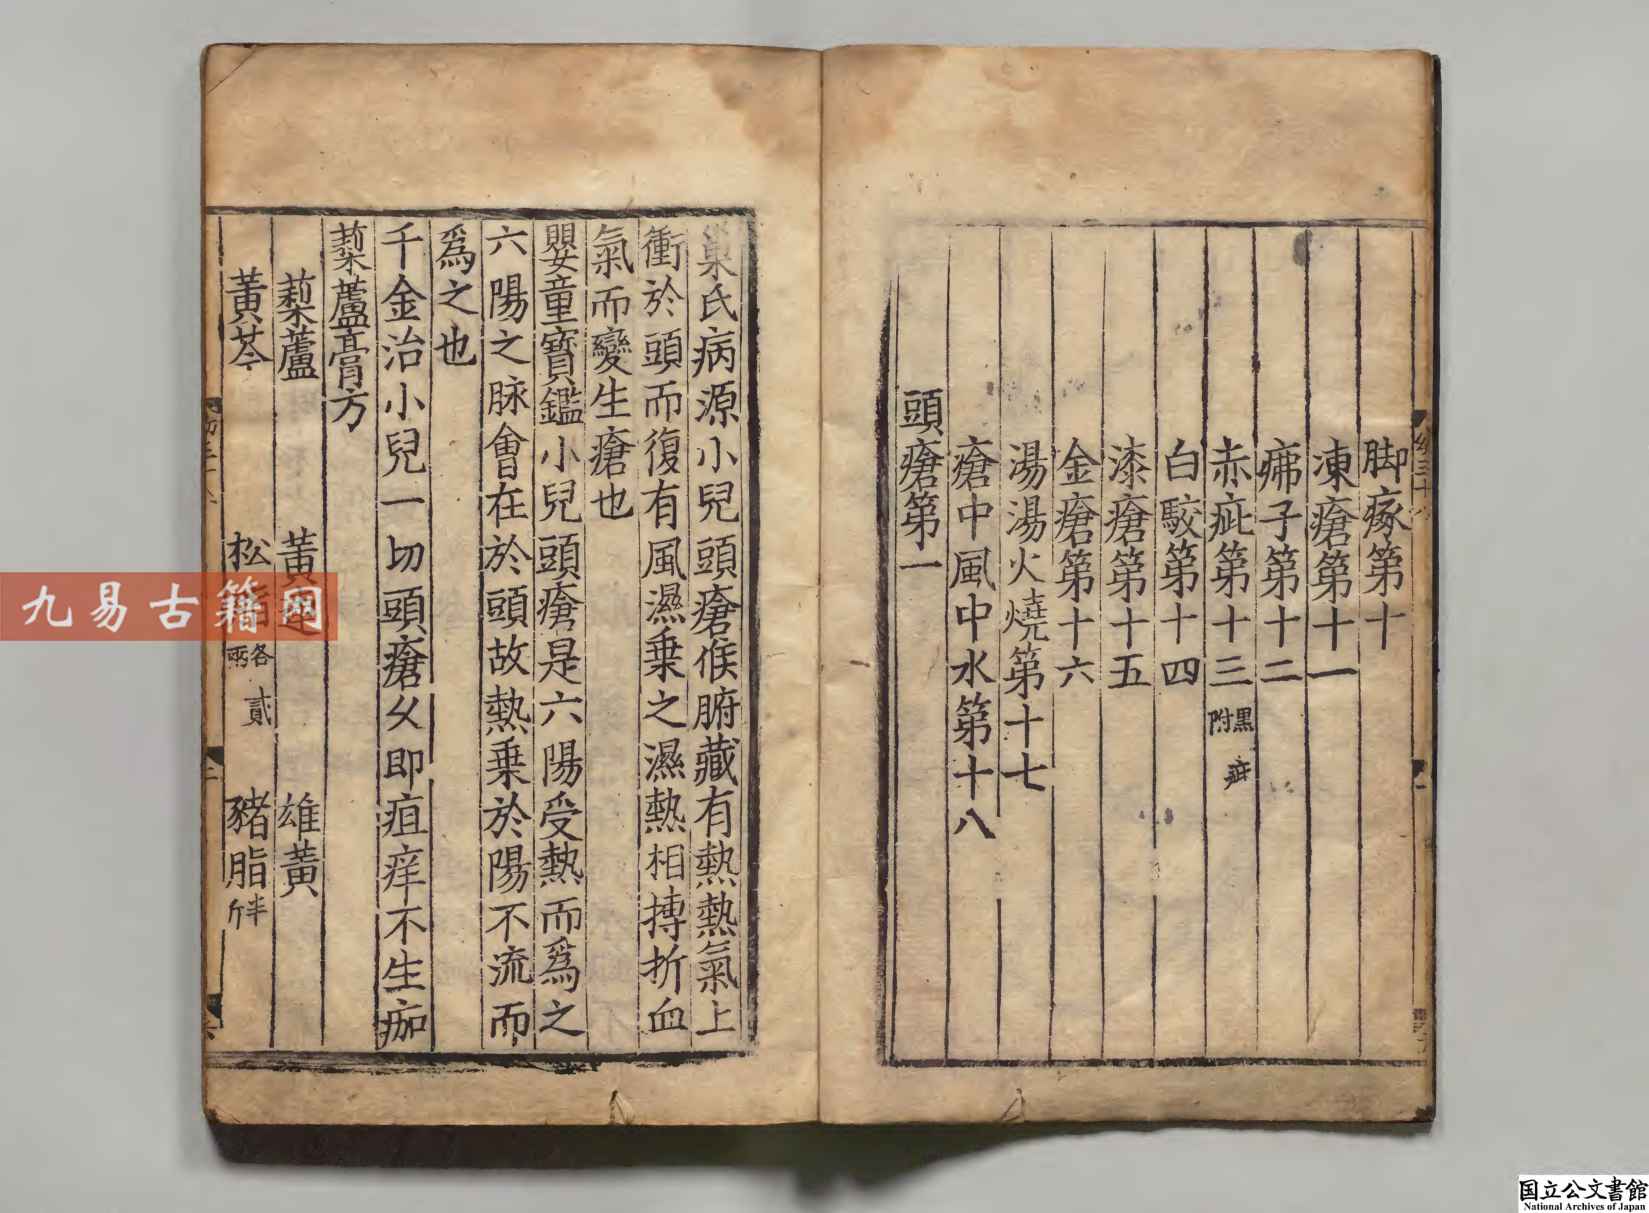 脚瘃第十
凍瘡第十一
疿子第十二
赤疵第十三 黒疵附
白駮第十四
漆瘡第十五
金瘡第十六
湯湯火燒第十七
瘡中風中水第十八
頭瘡第一
巢氏病源小兒頭瘡候腑藏有熱熱氣上
衝於頭而復有風濕乗之濕熱相摶折血
氣而變生瘡也
嬰童寳鑑小兒頭瘡是六陽受熱而爲之
六陽之脉會在於頭故熱乗於陽不流而
爲之也
千金治小兒一切頭瘡乆即疽痒不生痂
蔾蘆膏方
蔾蘆 黄 雄黄
黄芩 松脂各貳兩 豬脂半斤
九易古籍网
国立公文書館
National Archives of Japan